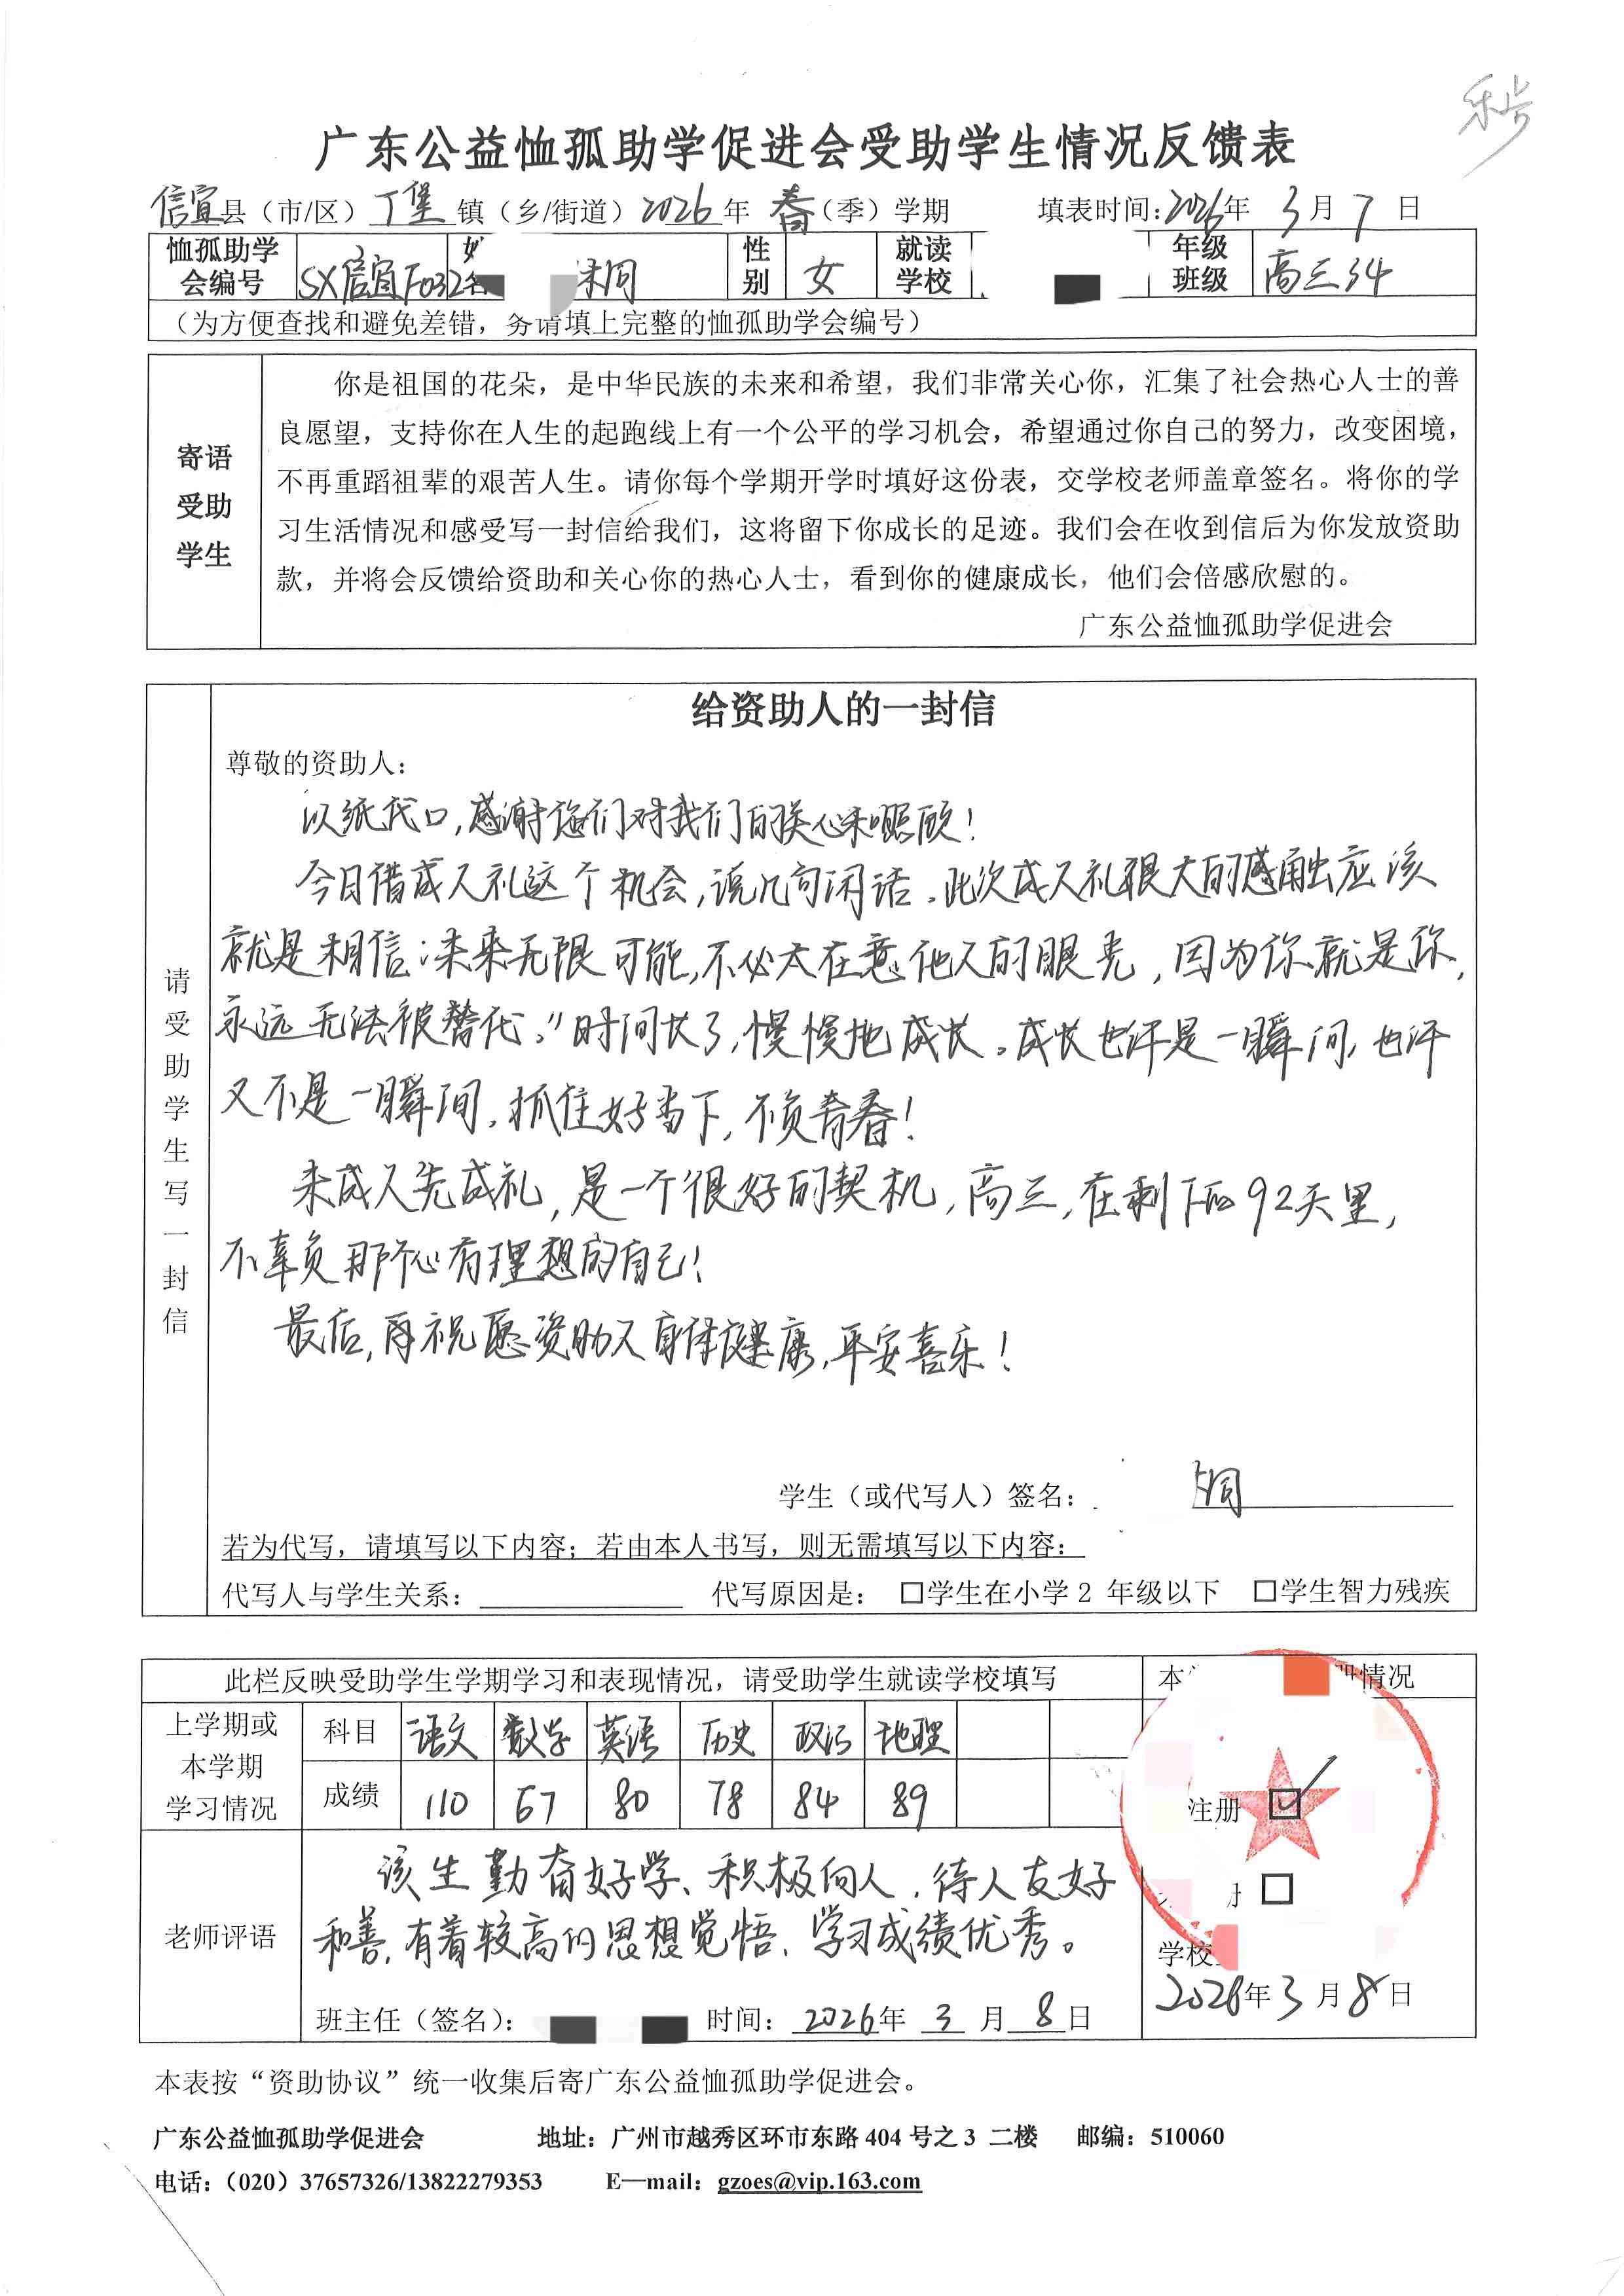 广东公益恤孤助学促进会受助学生情况反馈表
信宜县（市/区）丁堡镇（乡/街道）2026年 春（季）学期 填表时间:2026年 3月 7日
恤孤助学会编号 SX信宜F032 名 性别 女 就读学校 年级班级 高三34
（为方便查找和避免差错，务请填上完整的恤孤助学会编号）
寄语受助学生
你是祖国的花朵，是中华民族的未来和希望，我们非常关心你，汇集了社会热心人士的善
良愿望，支持你在人生的起跑线上有一个公平的学习机会，希望通过你自己的努力，改变困境，
不再重蹈祖辈的艰苦人生。请你每个学期开学时填好这份表，交学校老师盖章签名。将你的学
习生活情况和感受写一封信给我们，这将留下你成长的足迹。我们会在收到信后为你发放资助
款，并将会反馈给资助和关心你的热心人士，看到你的健康成长，他们会倍感欣慰的。
广东公益恤孤助学促进会
请受助学生写一封信
给资助人的一封信
尊敬的资助人：
以纸代口,感谢您们对我们的关心和照顾！
今日借成人礼这个机会,说几句闲话。此次成人礼很大的感触应该
就是相信：未来无限可能,不必太在意他人的眼光，因为你就是你,
永远无法被替代。”时间长了,慢慢地成长。成长也许是一瞬间,也许
又不是一瞬间,抓住好当下,不负青春！
未成人先成礼,是一个很好的契机,高三,在剩下的92天里,
不辜负那个心有理想的自己！
最后,再祝愿资助人身体健康,平安喜乐！
学生（或代写人）签名：
若为代写，请填写以下内容；若由本人书写，则无需填写以下内容：
代写人与学生关系： 代写原因是： □学生在小学2 年级以下 □学生智力残疾
此栏反映受助学生学期学习和表现情况，请受助学生就读学校填写 本 情况
上学期或本学期学习情况
科目 语文 数学 英语 历史 政治 地理
成绩 110 67 80 78 84 89
注册 ☑
册 □
老师评语
该生勤奋好学、积极向人，待人友好
和善,有着较高的思想觉悟、学习成绩优秀。
班主任（签名）： 时间：2026年 3 月 8日
学校
2026年3月8日
本表按“资助协议”统一收集后寄广东公益恤孤助学促进会。
广东公益恤孤助学促进会 地址：广州市越秀区环市东路 404 号之 3 二楼 邮编：510060
电话：（020）37657326/13822279353 E—mail：gzoes@vip.163.com